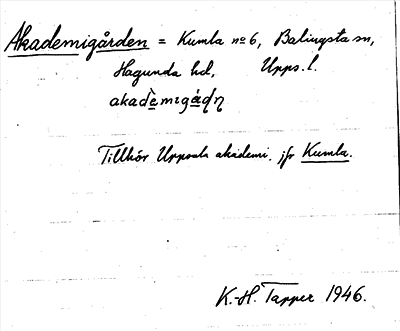 Akademigården = Kumla no 6, Balingsta sn,
Hagunda hd, Upps. l.
akademigádn
Tillhör Uppsala akademi. jfr Kumla.
K.-H. Tapper 1946.